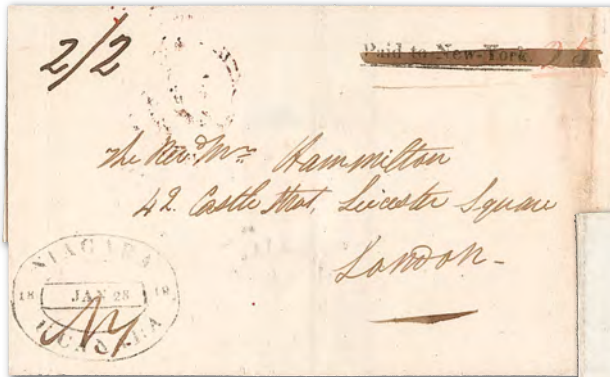 2/2
Paid to New-York.
The Revd. Mr. Hammilton
42 Castle Street, Leicester Square
London-
NIAGARA
18 JAN 28 19